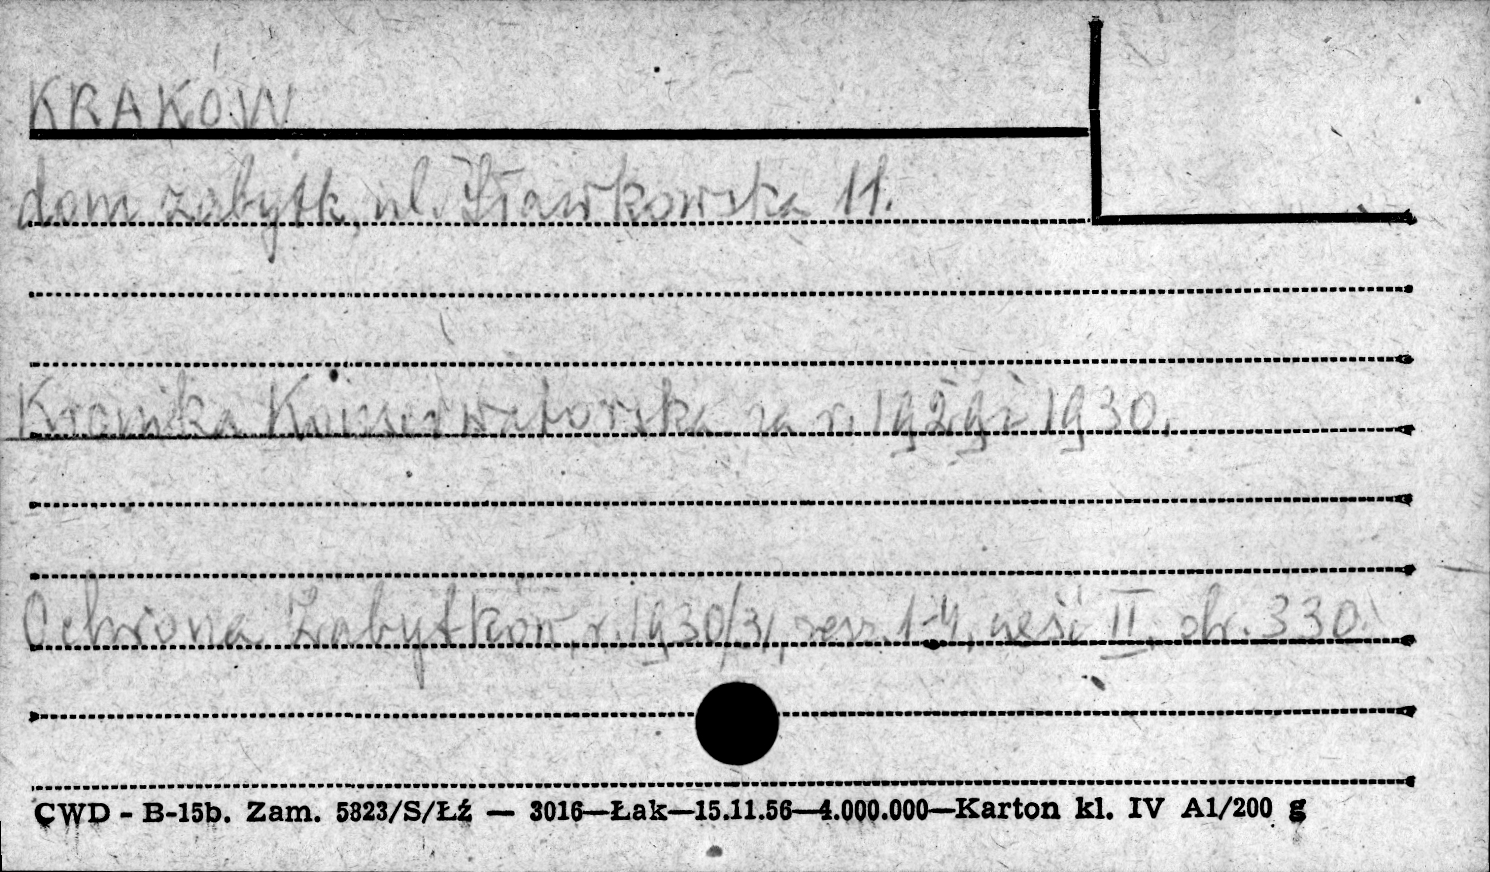 KRAKÓW
dom zabytk, ul. Sławkowska 11.
Kronika Konserwatorska za r. 1929 i 1930.
Ochrona Zabytków, r. 1930/31, zesz. 1-4, część II, str. 330.
CWD - B-15b. Zam. 5823/S/ŁŹ — 3016—Łak—15.11.56—4.000.000—Karton kl. IV A1/200 g